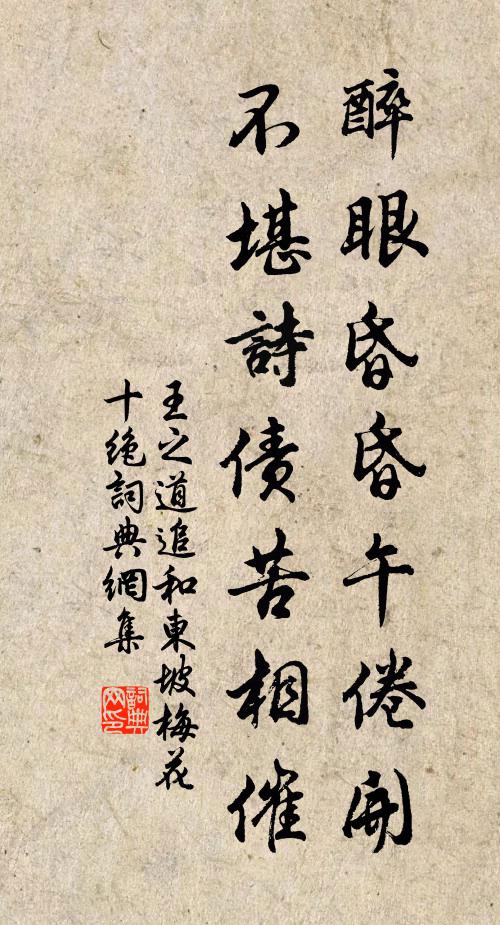 醉眼昏昏午倦開
不堪詩債苦相催
王之道追和東坡梅花
十絶詞典網集
詞典网印